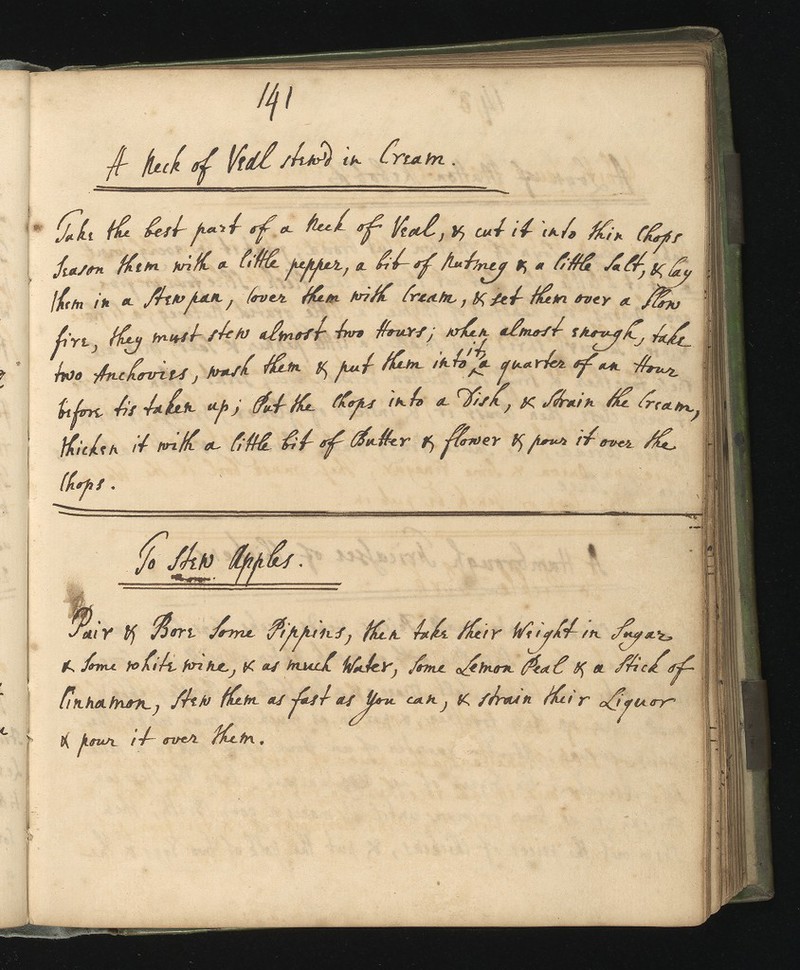 141
A Neck of Veal stew'd in Cream.
Take the best part of a Neck of Veal, & cut it into thin Chops
Season them with a little pepper, a bit of Nutmeg & a little Salt, & lay
them in a Stewpan, Cover them with Cream, & set them over a Slow
fire, they must stew almost two Hours; when almost enough, take
two Anchovies, wash them & put them into it, a quarter of an Hour
before tis taken up; Put the Chops into a Dish, & Strain the Cream,
thicken it with a little bit of Butter & flower & pour it over the
Chops.
To Stew Apples.
Pair & Bore Some Pippins, then take their Weight in Sugar
& Some white wine, & as much Water, Some Lemon Peal & a Stick of
Cinnamon, Stew them as fast as you can, & strain their Liquor
& pour it over them.